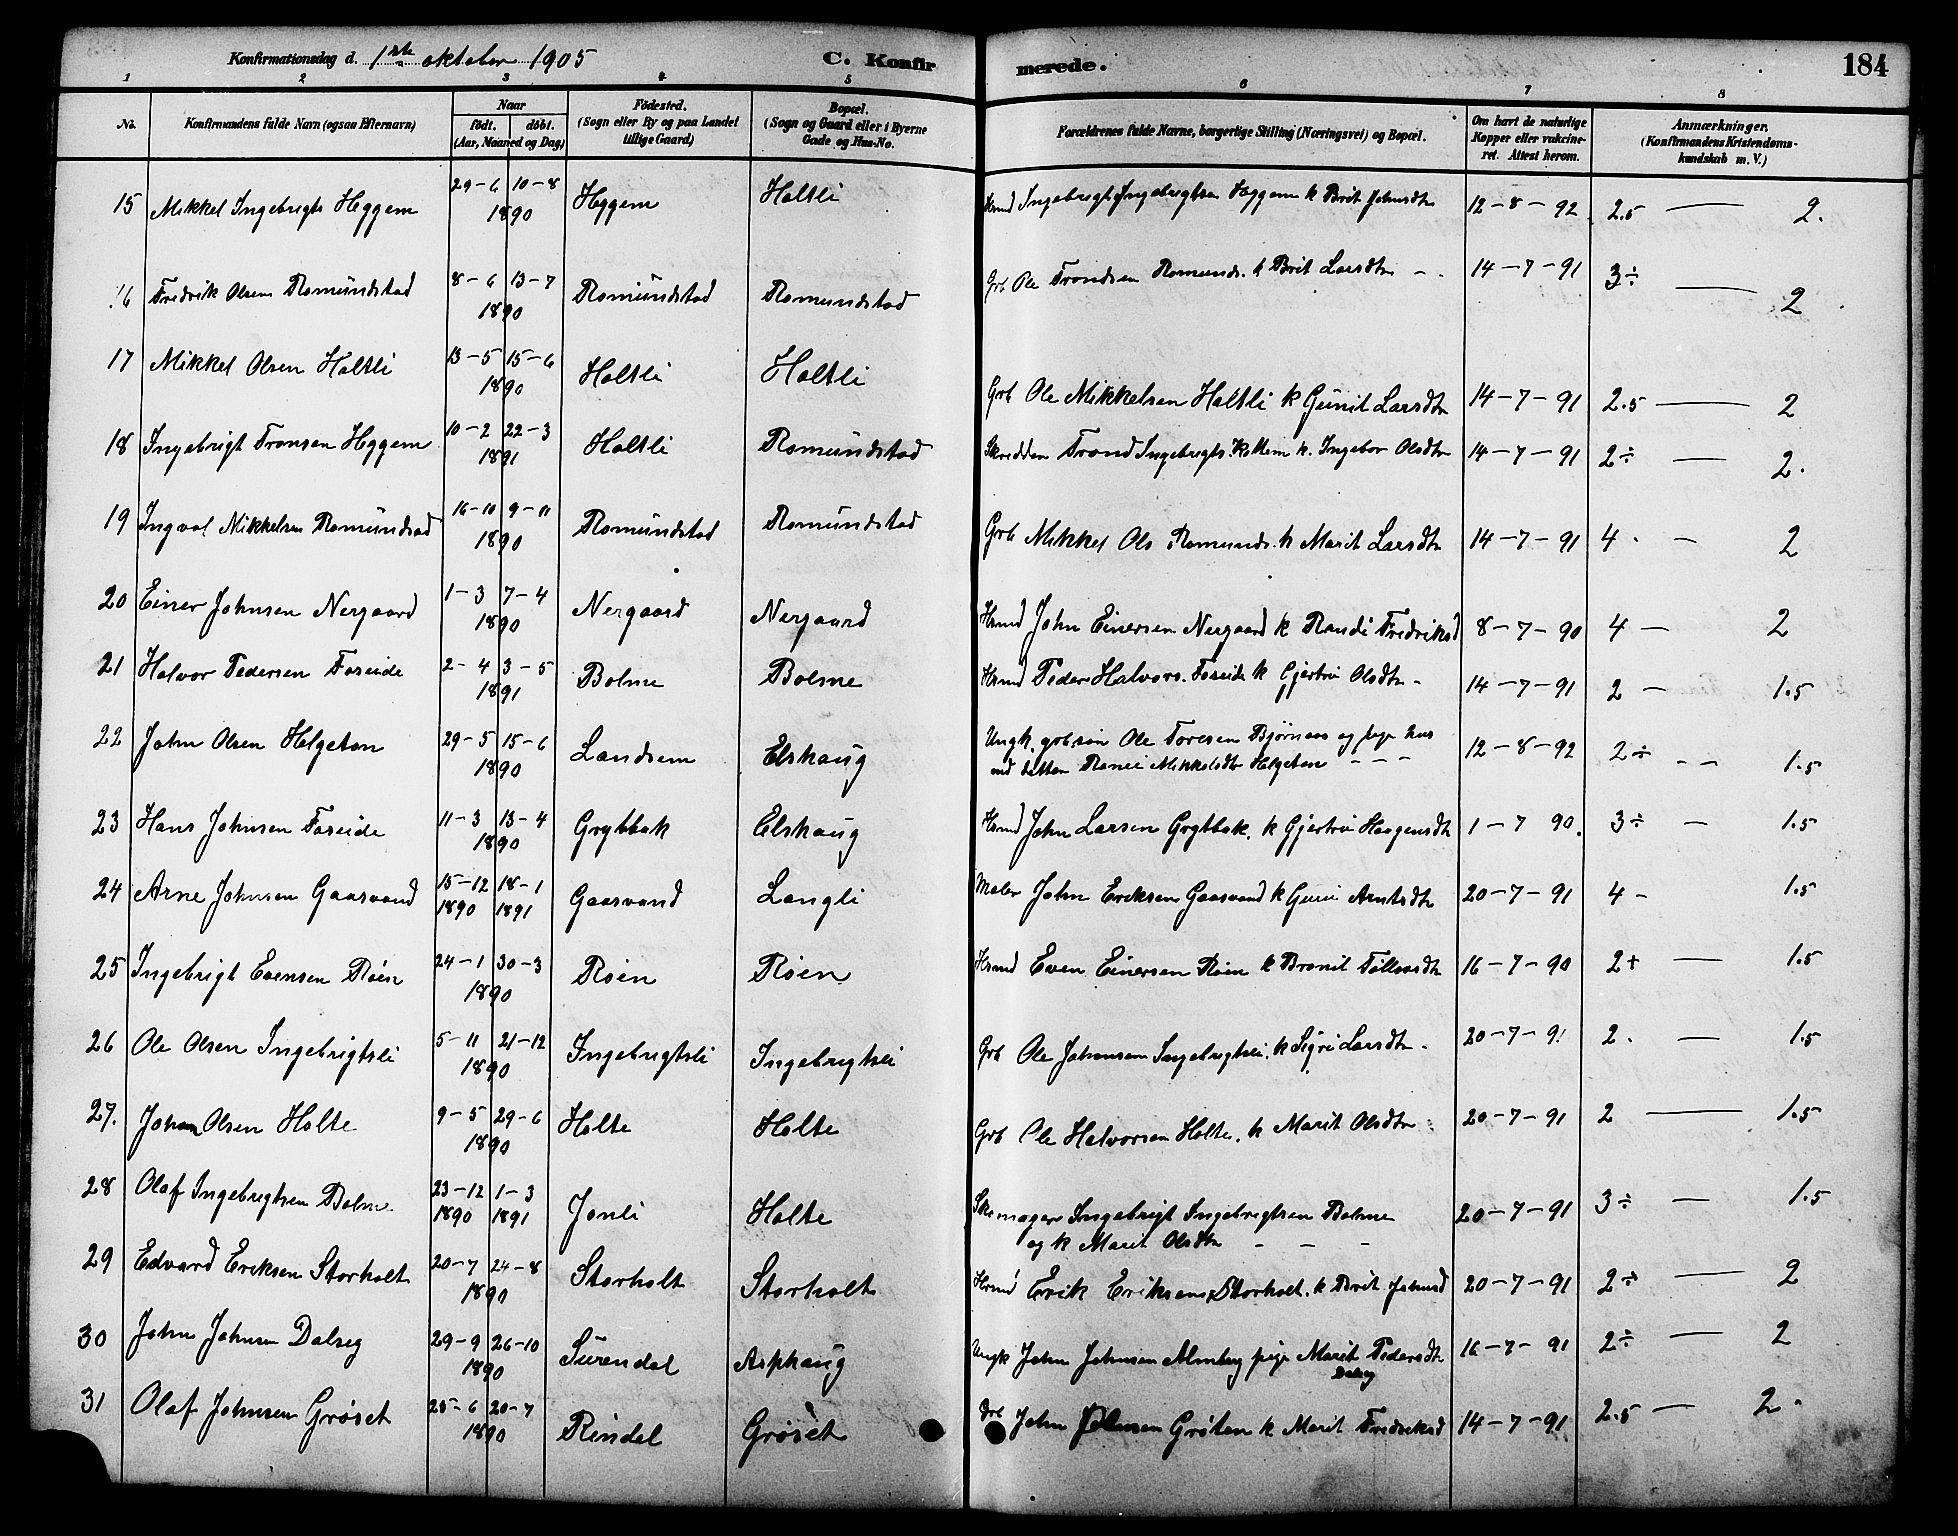 Konfirmationsdag d. 1ste oktober 1905 C. Konfirmerede. 184
1 2 3 4 5 6 7 8
No. Konfirmandens fulde Navn (ogsaa Efternavn) Naar födt. döbt. (Aar, Maaned og Dag) Födested. (Sogn eller By og paa Landet tillige Gaard) Bopæl. (Sogn og Gaard eller i Byerne Gade og Hus-No. Forældrenes fulde Navne, borgerlige Stilling (Næringsvei) og Bopæl. Om havt de naturlige Kopper eller vakcineret. Attest herom. Anmærkninger. (Konfirmandens Kristendomskundskab m. V.)
15 Mikkel Ingebrigts Heggem 29-6 10-8 1890 Heggem Holtli Hmd Ingebrigt Ingebrigtsen Heggem k Brit Johnsdtr 12-8-92 2.5 — 2.
16 Fredrik Olsen Romundstad 8-6 13-7 1890 Romundstad Romundstad Grb Ole Trondsen Romunds. k Brit Larsdtr - . 14-7-91 3÷ — 2
17 Mikkel Olsen Holtli 13-5 15-6 1890 Holtli Holtli Grb Ole Mikkelsen Holtli k Gunil Larsdtr 14-7-91 2.5 — 2
18 Ingebrigt Tronsen Heggem 10-2 22-3 1891 Holtli Romundstad Skrædder Trond Ingebrigts. k. Ingebor Olsdtr 14-7-91 2÷ — 2.
19 Ingval Mikkelsen Romundstad 16-10 9-11 1890 Romundstad Romundstad Grb Mikkel Ols Romunds. k Marit Larsdtr 14-7-91 4 . — 2
20 Einer Johnsen Nergaard 1-3 7-4 1890 Nergaard Nergaard Hmd John Einersen Nergaard k Randi Fredriksd 8-7-90 4 — 2
21 Halvor Pedersen Foseide 2-4 3-5 1891 Bolme Bolme Hmd Peder Halvors. Foseide k Gjertru Olsdtr - 14-7-91 2 — 1.5
22 John Olsen Helgeton 29-5 15-6 1890 Landsem Elshaug Ungk. grbsøn Ole Toresen Bjørnaas og pige hus
Mikkelsdtr Helgeton - - - 12-8-92 2÷ - - 1.5
23 Hans Johnsen Foseide 11-3 13-4 1890 Grytbak Elshaug Hmd John Larsen Grytbak. k Gjertru Haagensdtr 1-7 90. 3÷ — 1.5
24 Arne Johnsen Gaasvand 15-12 1890 18-1 1891 Gaasvand Langli Maler John Eriksen Gaasvand k Guru Arntsdtr 20-7-91 4 - 1.5
25 Ingebrigt Evensen Røen 24-1 30-3 1890 Røen Røen Hmd Even Einersen Røen k Bronil Tøllevsdtr 16-7-90 2+ — 1.5
26 Ole Olsen Ingebrigtsli 5-11 21-12 1890 Ingebrigtsli Ingebrigtsli Grb Ole Johansen Ingebrigtsli. k Sigri Larsdtr - 20-7-91 2. — 1.5
27. Johan Olsen Holte 9-5 29-6 1890 Holte Holte Grb Ole Halvorsen Holte. k Marit Olsdtr 20-7-91 2 — 1.5
28 Olaf Ingebrigtsen Bolme. 23-12 1890 1-3 1891 Jønli Holte Skomager Ingebrigt Ingebrigtsen Bolme
og k Marit Olsdtr - - - 20-7-91 3÷ — 1.5
29 Edvard Eriksen Storholt 20-7 24-8 1890 Storholt Storholt Hmd Erik Eriksen Storholt. k Brit Johnsd 20-7-91 2÷ — 2
30 John Johnsen Dalseg 29-9 26-10 1890 Surendal Asphaug Ungk John Johnsen Almberg pige Marit Pedersdtr
Dalseg 16-7-91 2÷ — 2
31 Olaf Johnsen Grøset 25-6 20-7 1890 Rindal Grøset Grb John Johnsen Grøten k Marit Fredriksd 14-7-91 2.5 — 2.